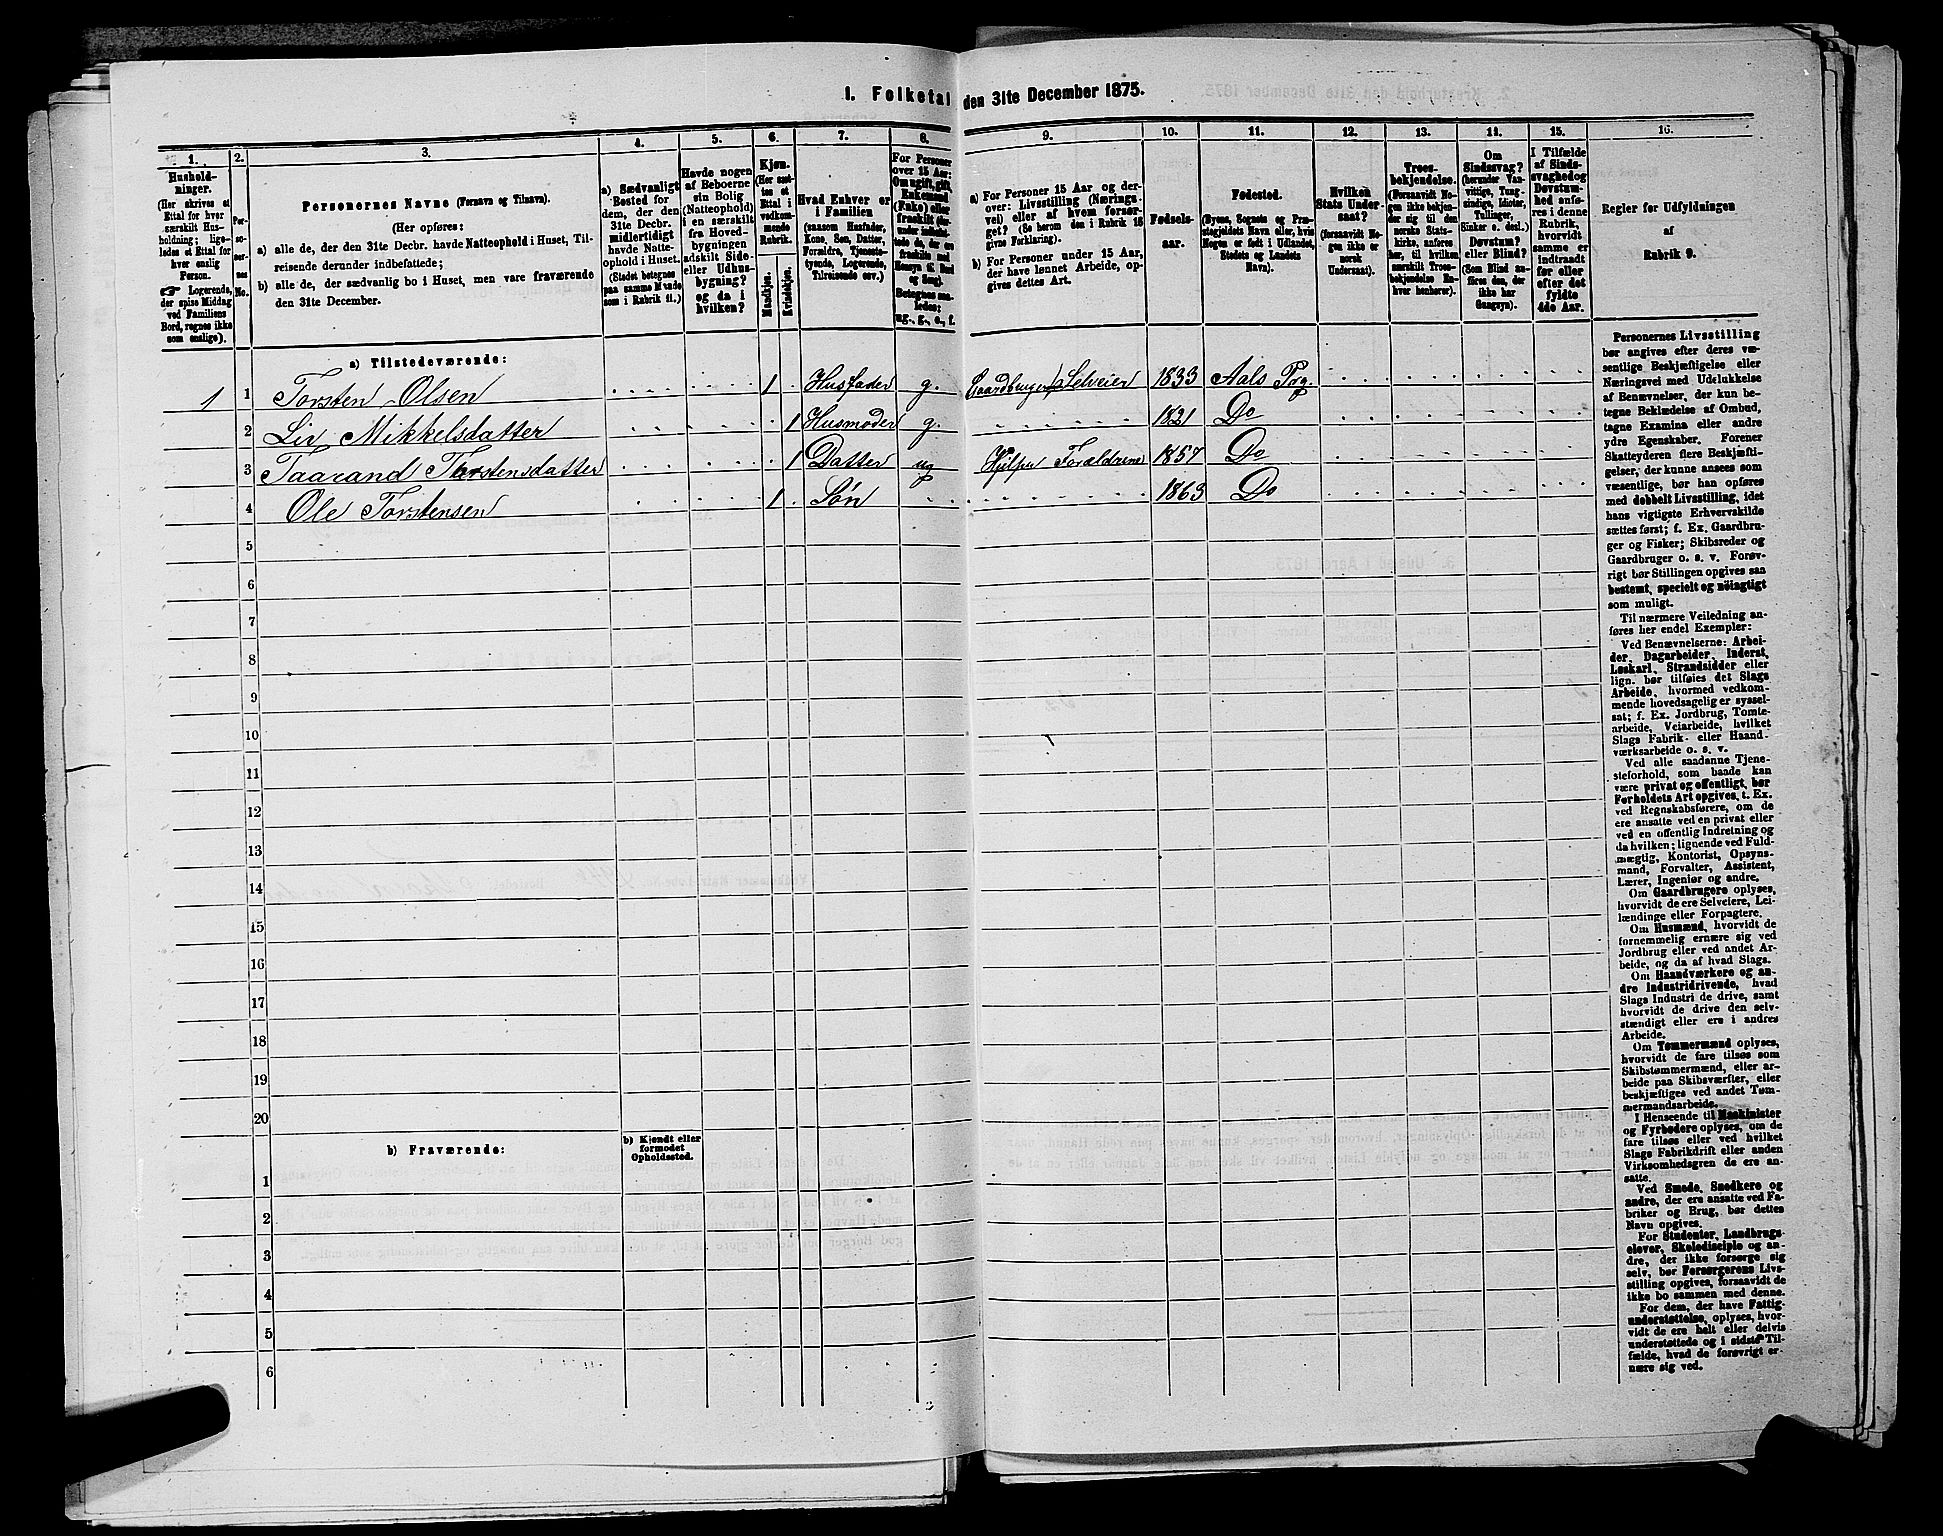 1. Folketal den 31te December 1875.
1. 2. 3. 4. 5. 6. 7. 8. 9. 10. 11. 12. 13. 14. 15. 16.
Hushold-
ninger.
(Her skrives et
Ettal for hver
særskilt Hus-
holdning; lige-
ledes et Ettal for
hver enslig
Person.
☞ Logerende,
der spise Middag
ved Familiens
Bord, regnes ikke
som enslige).
Per-
so-
ner-
nes
No.
Personernes Navne (Fornavn og Tilnavn).
(Her opføres:
a) alle de, der den 31te Decbr. havde Natteophold i Huset, Til-
reisende derunder indbefattede;
b) alle de, der sædvanlig bo i Huset, men vare fraværende
den 31te December.
a) Sædvanligt
Bosted for
dem, der den
31te Decbr.
midlertidigt
havde Natte-
ophold i Huset.
(Stedet betegnes
paa samme Maade
som i Rubrik 11.)
Havde nogen
af Beboerne
sin Bolig
(Natteophold)
i en særskilt
fra Hoved-
bygningen
adskilt Side-
eller Udhus-
bygning?
og da i
hvilken?
Kjøn.
(Her sæt-
tes et
Ettal i
vedkom-
mende
Rubrik.
Mandkjøn.
Kvindekjøn.
Hvad Enhver er
i Familien
(saasom Husfader,
Kone, Søn, Datter,
Forældre, Tjeneste-
tyende, Logerende,
Tilreisende osv.)
For Personer
over 15 Aar:
Om ugift, gift,
Enkemand
(Enke) eller
fraskilt
Betegnes saa-
ledes:
ug., g., e., f.
a) For Personer 15 Aar og der-
over: Livsstilling (Nærings-
vei) eller af hvem forsør-
get? (Se herom des i Rubrik 16
givne Forklaring).
b) For Personer under 15 Aar,
der have lønnet Arbeide, op-
gives dettes Art.
Fødsels-
aar.
Fødested.
(Byens, Sognets og Præ-
stegjeldets Navn eller, hvis
Nogen er født i Udlandet,
Stedets og Landets
Navn).
Hvilken
Stats Under-
saat?
(forsaavidt No-
gen ikke er
norsk
Undersaat).
Troes-
bekjendelse.
(Forsaavidt No-
gen ikke bekjen-
der sig til den
norske Stats-
kirke, anføres
her, til hvilken
særskilt Troes-
bekjendelse En-
hver henhører).
Om
Sindssvag?
(herunder Van-
vittige, Tung-
sindige, Idioter,
Tullinger,
Sinker o. desl.)
Døvstum?
eller Blind?
(Som Blind an-
føres den, der
ikke har
Gangsyn).
I Tilfælde
af Sinds-
svaghed og
Døvstum-
hed anfø-
res i denne
Rubrik,
hvorvidt
samme er
indtraadt
før eller
efter det
fyldte
4de Aar.
Regler for Udfyldningen
af
Rubrik 9.
a) Tilstedeværende:
1 1 Torsten Olsen 1 Husfader g. Gaardbruger, Selveier 1833 Aals Prg.
2 Liv Mikkelsdatter 1 Husmoder g. 1821 Do
3 Taarand Torstensdatter 1 Datter ug Hjelper Forældrene 1857 Do
4 Ole Torstensen 1 Søn 1863 Do
5
6
7
8
9
10
11
12
13
14
15
16
17
18
19
20
b) Fraværende:
b) Kjendt eller
formodet
Opholdssted.
1
2
3
4
5
6
Personernes Livsstilling
bør angives efter deres væ-
sentlige Beskjæftigelse eller
Næringsvei med Udelukkelse
af Benævnelser, der kun be-
tegne Beklædelse af Ombud,
tagne Examina eller andre
ydre Egenskaber. Forener
Skatteyderen flere Beskjæfti-
gelser, der kunne ansees som
væsentlige, bør han opføres
med dobbelt Livsstilling, idet
hans vigtigste Erhvervskilde
sættes først; f. Ex. Gaardbru-
ger og Fisker; Skibsreder og
Gaardbruger o. s. v. Forøv-
rigt bør Stillingen opgives saa
bestemt, specielt og nøiagtigt
som muligt.
Til nærmere Veiledning an-
føres her endel Exempler:
Ved Benævnelserne: Arbei-
der, Dagarbeider, Inderst,
Løskarl, Strandsidder eller
lign. bør tilføies det Slags
Arbeide, hvormed vedkom-
mende hovedsagelig er syssel-
sat; f. Ex. Jordbrug, Tomte-
arbeide, Veiarbeide, hvilket
Slags Fabrik- eller Haand-
værksarbeide o. s. v.
Ved alle saadanne Tjene-
steforhold, som baade kan
være privat og offentligt, bør
Forholdets Art opgives, t. Ex.
ved Regnskabsførere, om de
ere ansatte ved en privat eller
ved en offentlig Indretning og
da hvilken; lignende ved Fuld-
mægtig, Kontorist, Opsyns-
mand, Forvalter, Assistent,
Lærer, Ingeniør og andre.
Om Gaardbrugere oplyses,
hvorvidt de ere Selveiere, Lei-
lændinge eller Forpagtere.
Om Husmænd, hvorvidt de
fornemmelig ernære sig ved
Jordbrug eller ved andet Ar-
beide, og da af hvad Slags.
Om Haandværkere og an-
dre Industridrivende, hvad
Slags Industri de drive, samt
hvorvidt de drive den selv-
stændigt eller ere i andres
Arbeide.
Om Tømmermænd oplyses,
hvorvidt de fare tilsøs som
Skibstømmermænd, eller ar-
beide paa Skibsværfter, eller
beskjæftiges ved andet Tøm-
mermandsarbeide.
I Henseende til Maskinister
og Fyrbødere oplyses, om de
fare tilsøs eller ved hvilket
Slags Fabrikdrift eller anden
Virksomhedsgren de ere an-
satte.
Ved Smede, Snedkere og
andre, der ere ansatte ved Fa-
briker og Brug, bør dettes
Navn opgives.
For Studenter, Landbrugs-
elever, Skoledisciple og an-
dre, der ikke forsørge sig
selv, bør Forsørgerens Livs-
stilling opgives, forsaavidt de
ikke bo sammen med denne.
For dem, der have Fattig-
understøttelse, oplyses, hvor-
vidt de ere helt eller delvis
understøttede og i sidste Til-
fælde, hvad de forøvrigt er-
nære sig ved.